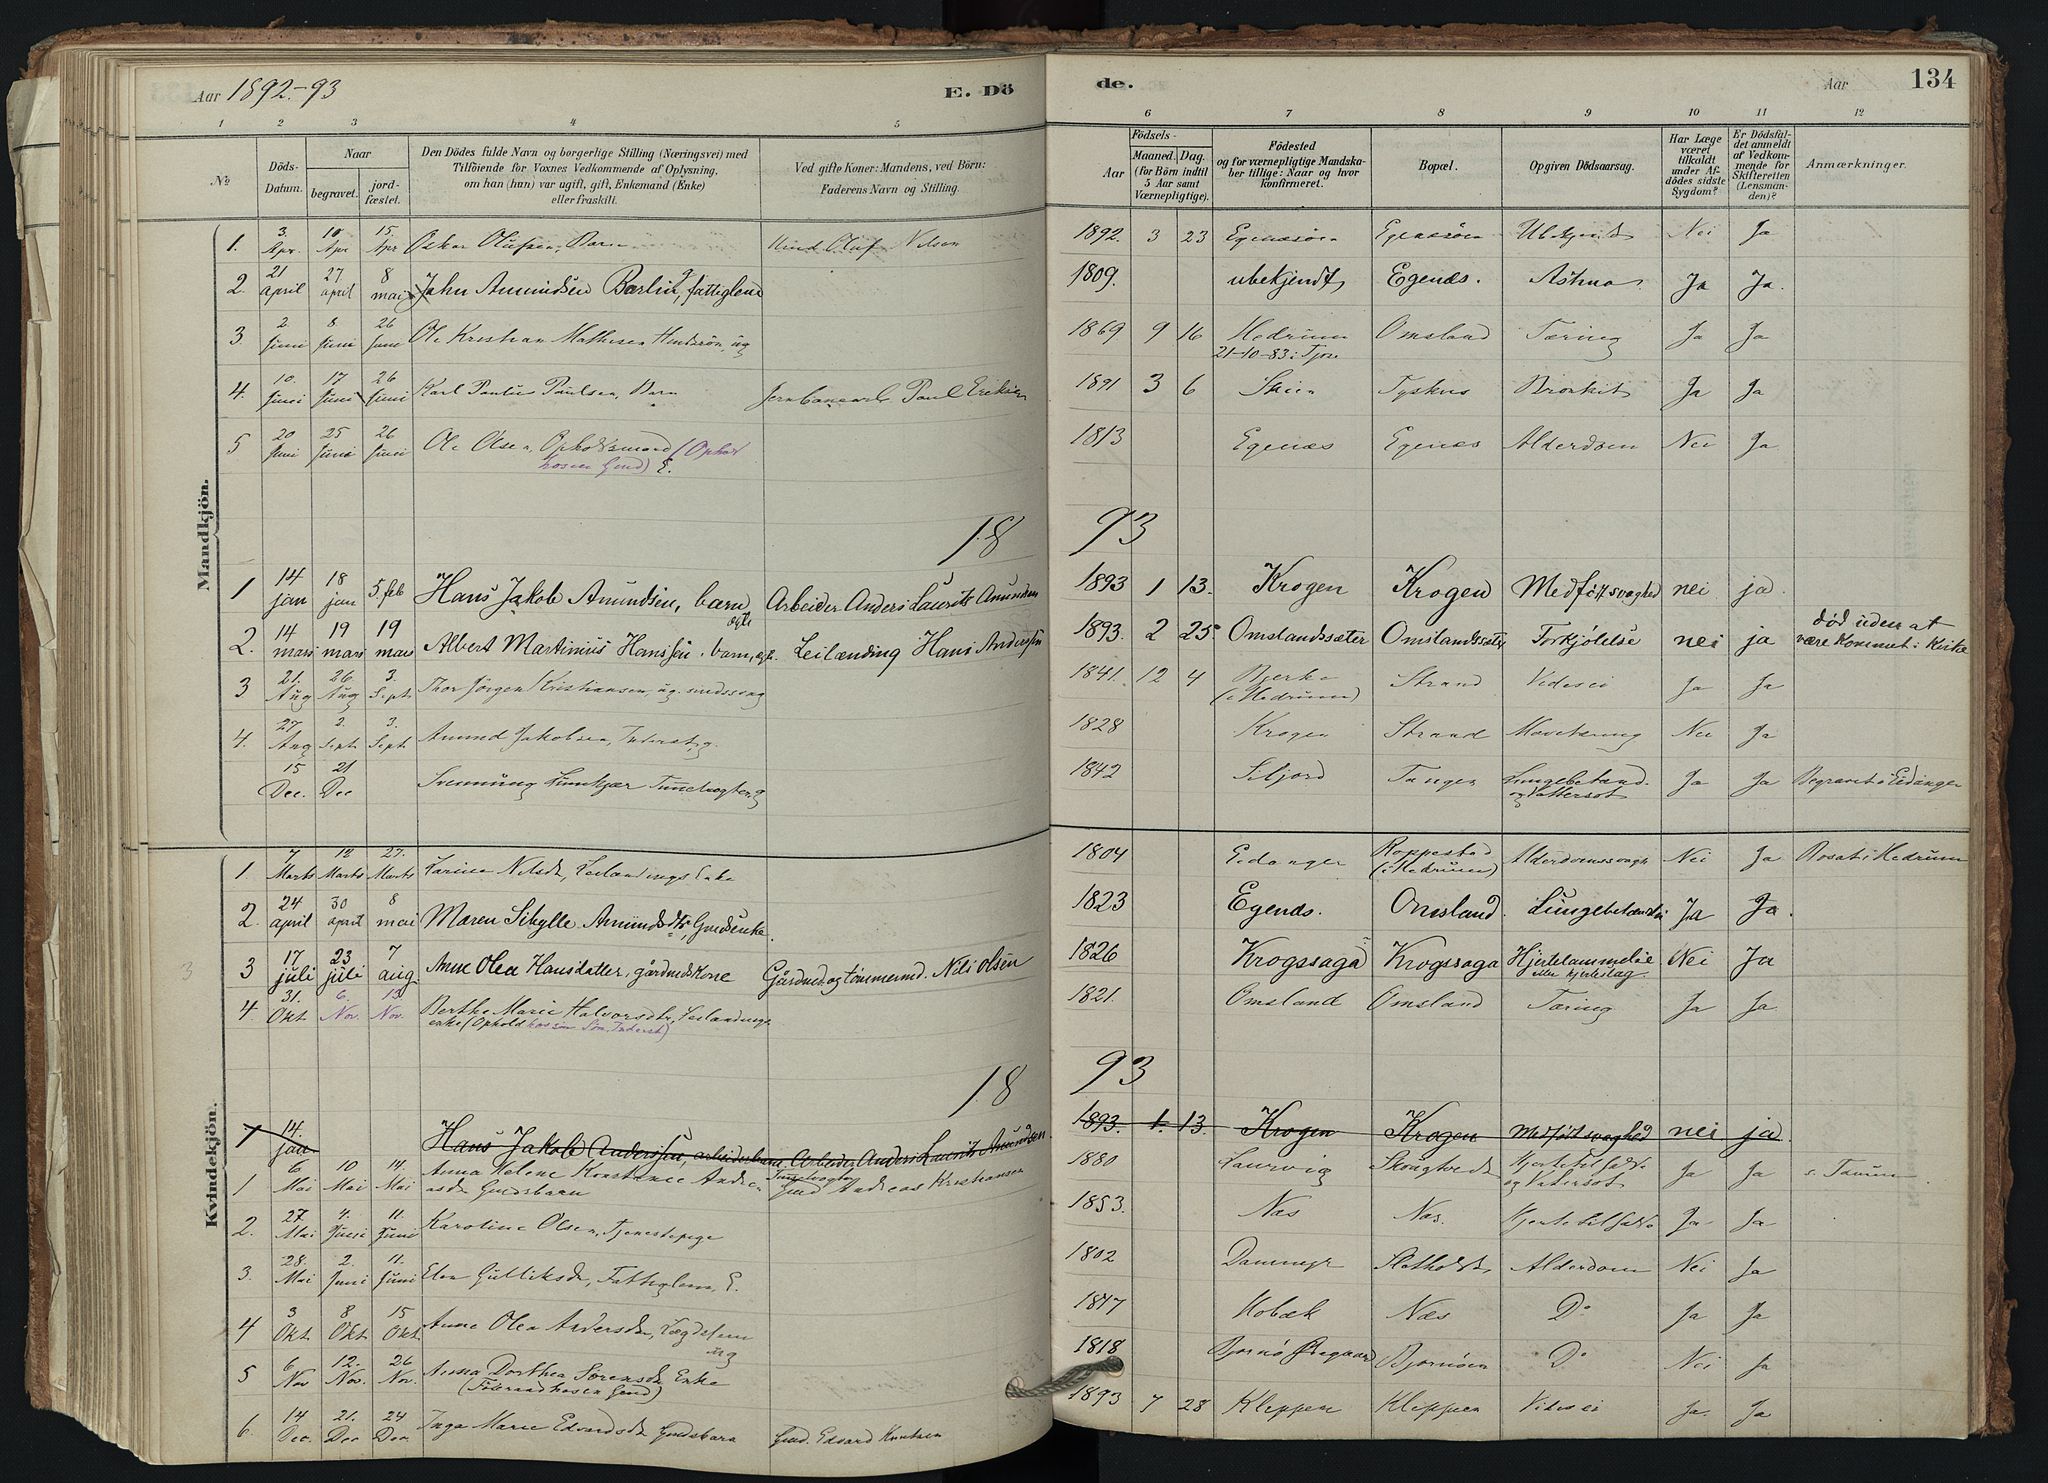 Aar 1892-93 E. Dö de. Aar 134
1 2 3 4 5 6 7 8 9 10 11 12
No
Döds-Datum.
Naar
begravet. jordfæstet.
Den Dödes fulde Navn og borgerlige Stilling (Næringsvei) med
Tilföiende for Voxnes Vedkommende af Oplysning,
om han (hun) var ugift, gift, Enkemand (Enke)
eller fraskilt.
Ved gifte Koner: Mandens, ved Börn:
Faderens Navn og Stilling.
Aar
Födsels-
Maaned. Dag.
(for Börn indtil
5 Aar samt
Værnepligtige).
Födested
og for værnepligtige Mandska-
ber tillige: Naar og hvor
konfirmeret.
Bopæl.
Opgiven Dödsaarsag.
Har Læge
været
tilkaldt
under Af-
dödes sidste
Sygdom?
Er Dödsfal-
det anmeldt
af Vedkom-
mende for
Skifteretten
(Lensman-
den)?
Anmærkninger.
Mandkjön.
1. 3. Apr. 10 Apr 15. Apr Oskar Olufsen, Barn Oluf Nilsen 1892. 3 23 Nei Ja
2. 21 april 27 april 8 mai John Amundsen fattiglem 1809. ubekjendt Egenæs. Astma Ja Ja.
3 2. Juni 8. Juni 26 June Ole Kristian Mathisen ug 1869 9 16 Hedrum Omsland Tæring Ja Ja
21-10-83 i
4. 10. Juni 17 Juni 26 Juni Karl Paulsen, Barn Paul Eriksen 1891 3 6 Skien Bronkit Ja Ja
5 20 Juni 25 Juni 26 Juni Ole Olsen, (Ophol 1813 Egenæs Egenæs Alderdom Nei Ja
hos en Gmd) E.
18 93
1 14 jan 18 jan 5 feb Hans Jakob Amundsen, barn Arbeider Anders Laurits Amundsen 1893 1 13. Krogen Krogen Medføt svaghed nei ja.
ægte
2. 14 mars 19 mars 19 mars Albert Martinius Hanssen, barn, Leilænding Hans Anderssen 1893. 2 25 Omslandssæter Omslandssæter Forkjølelse nei ja død uden at
være kommet i Kirke
3 21. Aug 26 Aug 3. Sept. Thor Jörgen Kristiansen, ug. sindssvag 1841. 12 4 Bjerke Strand Ja Ja
(i Hedrum)
4. 27 Aug 2. Sept 3. Sept. Amund Jakobsen, Inderst, g. 1828 Krogen Strand Nei Ja
15 Dec. 21 Dec Svennung g 1842 Siljord Tangen Lungebetænd. Ja Ja Begravet i Eidanger
Kvindekjön.
1 7 Marts 12 Marts 27. Marts Karine Nilsdr, Leilændings Enke 1804 Eidanger Nei Ja Bosat i Hedrum
(i Hedrum)
2 24 april 30 april 8 mai Maren Sibylle Amundsdtr, Gmdsenke. 1823 Egenæs. Omsland. Lungebetændelse Ja Ja.
3 17 juli 23 juli 7 aug. Anne Olea Hansdatter, gårdmdskone Gårdmd. og tømmermd. Nils Olsen 1826 Krogssaga Krogssaga Hjertelammelse Nei Ja
eller hjerteslag
4. 31. Okt 6. Nov. 13 Nov. Berthe Marie Halvorsdtr, Leilændings 1821. Omsland Omsland Tæring Ja Ja
enke (Ophold hos sin Søn, Inderst)
18 93
1 14. jan. Hans Jakob Anderssen, arbeiderbarn. Arbeider Anders Laurits Amundsen. 1893. 1. 13. Krogen Krogen Medføt svaghed nei ja.
1 6 Mai 10 Mai 14. Mai Anna Helene Konstance Andrea 1880 Laurvig Ja Ja
Gmdsbarn Gmd Andreas Kristiansen
2. 27 Mai 4. Juni 11. Juni Karoline Olsen, Tjenestepige 1853. Næs Næs. Ja Ja
3. 28. Mai 2. Juni 11. Juni Elen Gulliksdr, Fattiglem, E. 1802 Alderdom Nei Ja
4 3 Okt 8 Okt 15 Okt Anne Olea Andersdr, Lægdslem 1847 Kobæk Næs Do Ja Ja
ug
5 6 Nov 12. Nov. 26 Nov. Anna Dorthea Sörensdr Enke 1818 Bjørnøen Do Nei Ja
(Föderaad hos en Gmd)
6. 14 Dec. 21. Dec 24 Dec Inga Marie Edvardsdr Gmdsbarn Gmd. Edvard Knutsen 1893 7 28 Kleppen Kleppen Ja. Ja